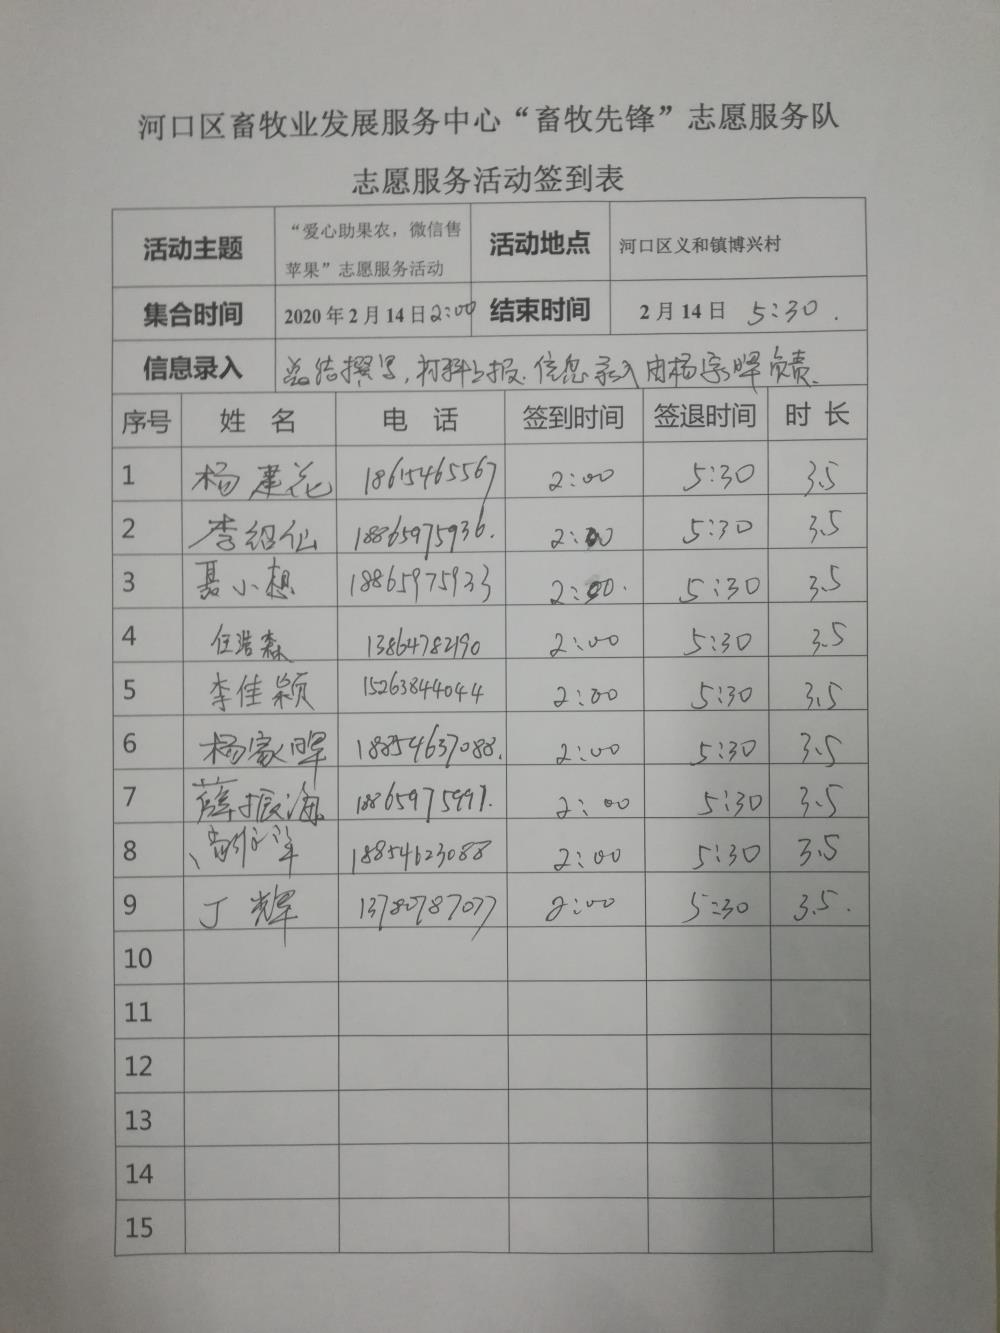 河口区畜牧业发展服务中心“畜牧先锋”志愿服务队
志愿服务活动签到表
活动主题 “爱心助果农，微信售苹果”志愿服务活动 活动地点 河口区义和镇博兴村
集合时间 2020年2月14日2:00 结束时间 2月14日 5:30.
信息录入 总结撰写,材料上报.信息录入由杨家晖负责.
序号 姓 名 电 话 签到时间 签退时间 时 长
1 杨建花 18615465567 2:00 5:30 3.5
2 李绍仙 18865975936. 2:00 5:30 3.5
3 聂小想 18865975933 2:00. 5:30 3.5
4 任浩森 13864782190 2:00 5:30 3.5
5 李佳颖 15263844044 2:00 5:30 3.5
6 杨家晖 18854637088. 2:00 5:30 3.5
7 薛振海 18865975991. 2:00 5:30 3.5
8 18854623088 2:00 5:30 3.5
9 丁辉 13780787077 2:00 5:30 3.5.
10
11
12
13
14
15